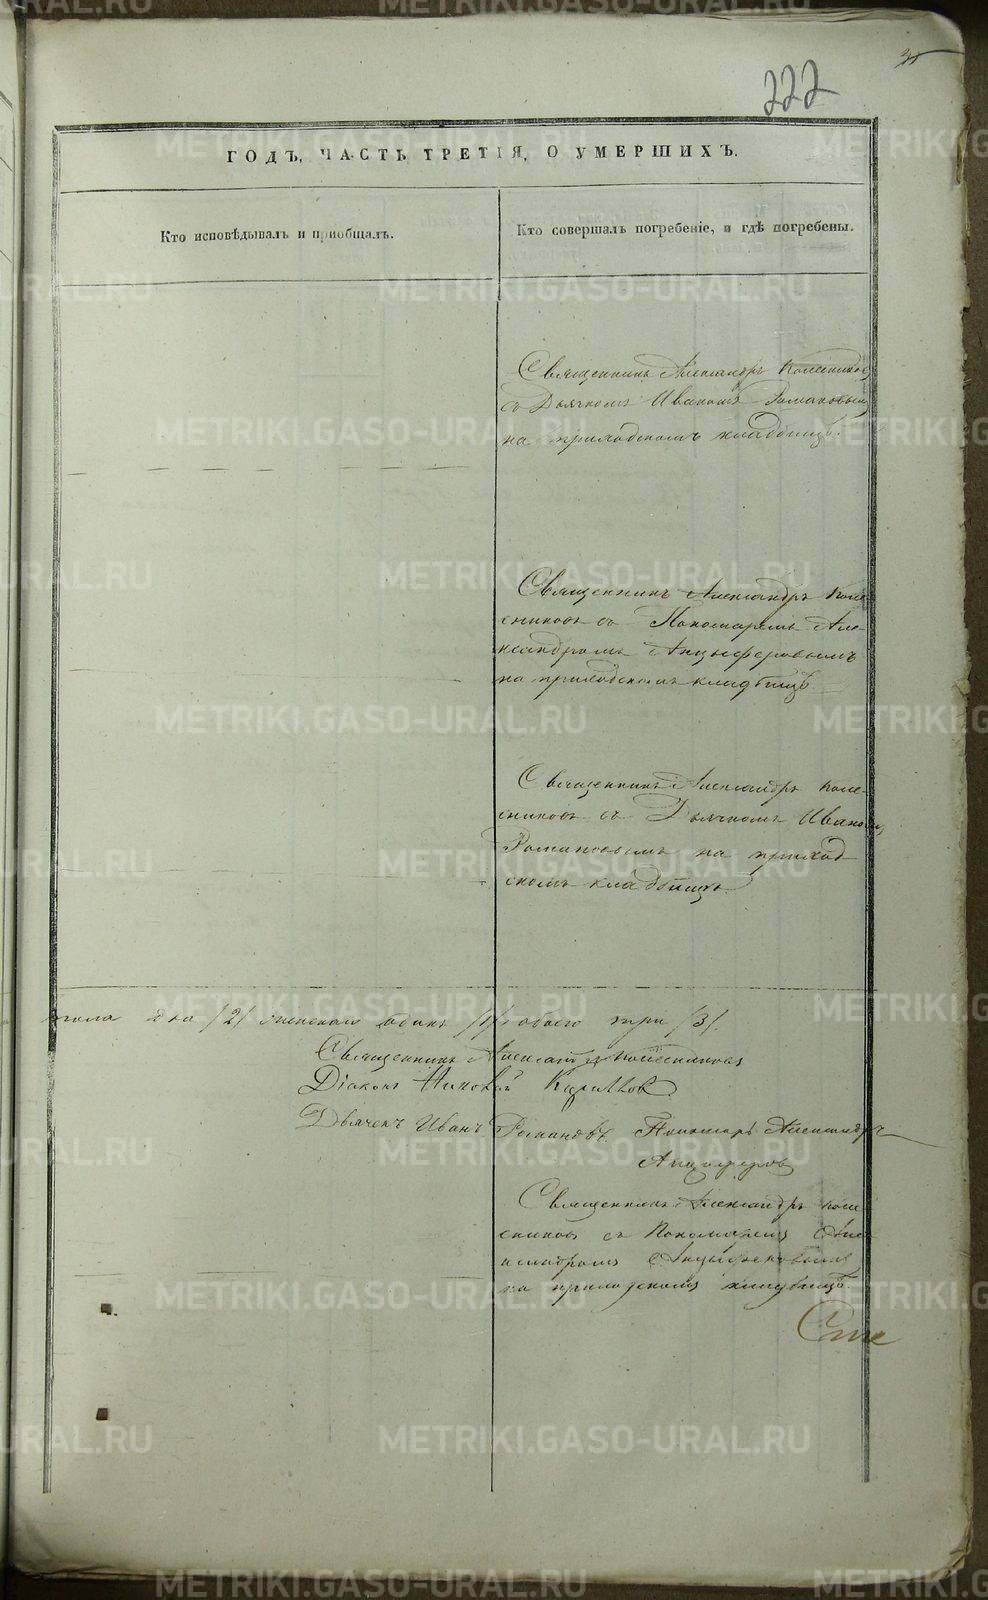 222
ГОДЪ, ЧАСТЬ ТРЕТІЯ, О УМЕРШИХЪ.
Кто исповѣдывалъ и пріобщалъ.
Кто совершалъ погребеніе, и гдѣ погребены.
Священникъ Александръ Колесниковъ
съ Дьячкомъ Иваномъ Романовым
на приходскомъ кладбищѣ.
Священникъ Александръ Коле-
сниковъ съ Пономаремъ Але-
ксандромъ Анцыферовымъ
на приходскомъ кладбищѣ.
Священникъ Александръ Коле-
сниковъ съ Дьячкомъ Иваномъ
Романовымъ на приход
скомъ кладбищѣ
пола два /2/ женскаго одинъ /1/ обоего три /3/.
Священникъ Александръ Колесниковъ
Діаконъ Николай
Дьячекъ Иванъ Романовъ. Пономарь Александръ
Анцыферовъ
Священникъ Александръ Коле
сниковъ съ Пономаремъ Але
ксандромъ Анцыферовымъ
на приходскомъ кладбищѣ
METRIKI.GASO-URAL.RU